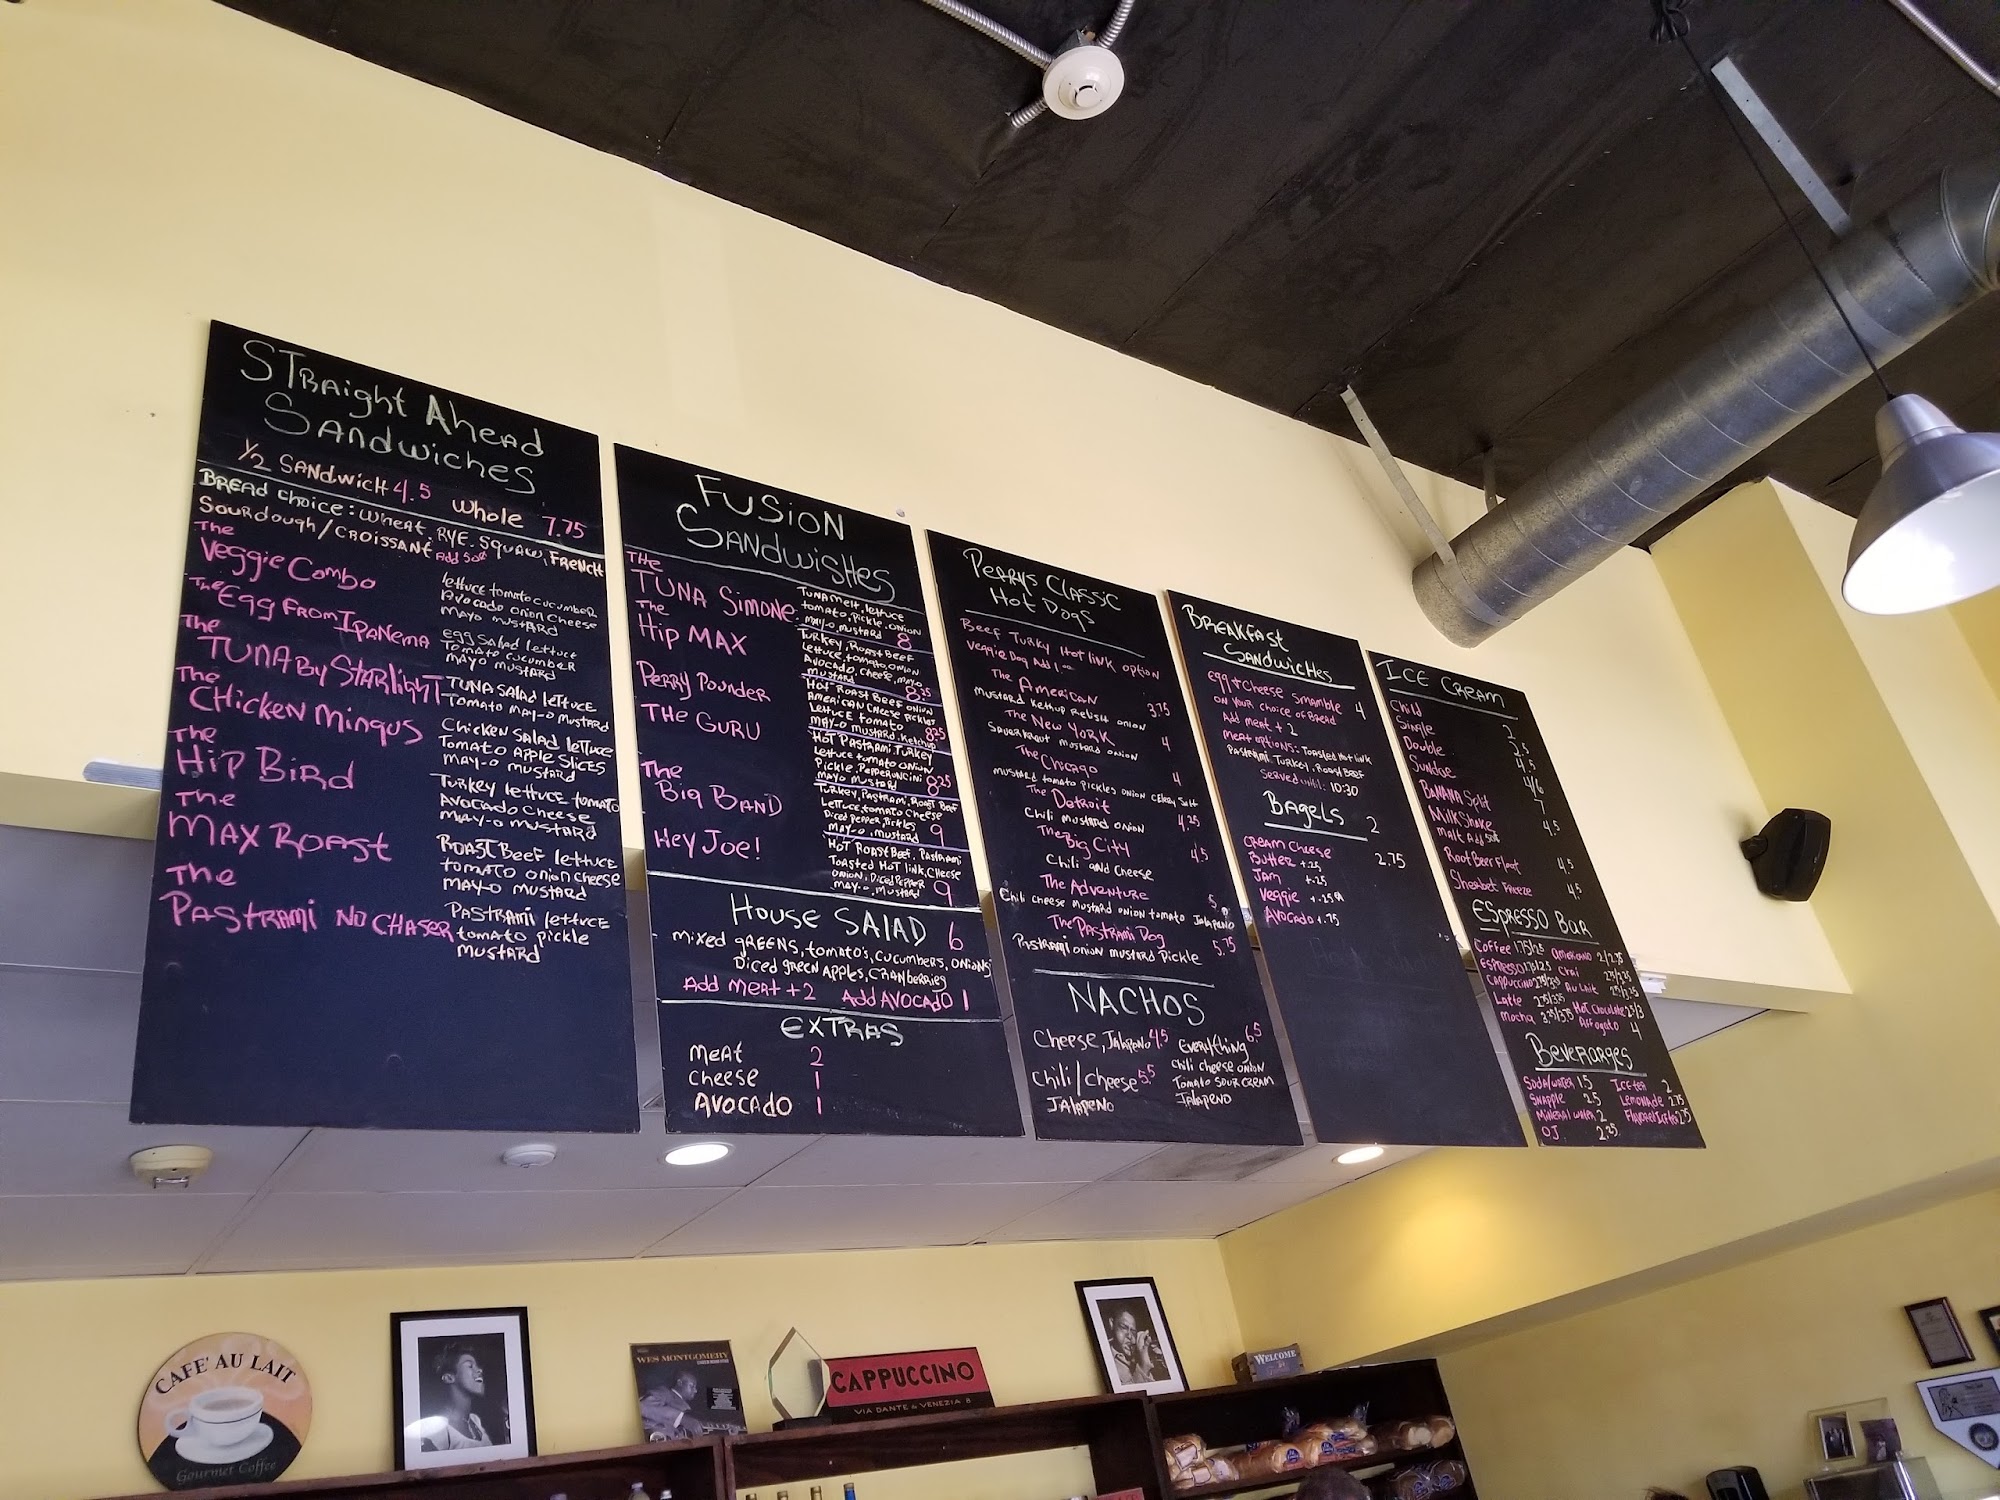 STraight Ahead
Sandwiches
1/2 Sandwich 4.5 Whole 7.75
Bread choice: Wheat, Rye, Squaw, French
Sourdough/Croissant Add 50¢
The
Veggie Combo
lettuce tomato cucumber
Avocado onion cheese
mayo mustard
The Egg From Ipanema
egg salad lettuce
Tomato cucumber
mayo mustard
The
Tuna By Starlight
Tuna salad lettuce
Tomato may-o mustard
The
Chicken Mingus
Chicken salad lettuce
Tomato Apple slices
may-o mustard
The
Hip Bird
Turkey lettuce tomato
Avocado cheese
may-o mustard
The
Max Roast
Roast Beef lettuce
tomato onion cheese
may-o mustard
The
Pastrami No Chaser
Pastrami lettuce
tomato pickle
mustard
Fusion
Sandwishes
The
Tuna Simone
Tuna melt, lettuce
tomato, pickle, onion
may-o mustard 8
The
Hip Max
Turkey, Roast Beef
lettuce, tomato, onion
Avocado, cheese, mayo
mustard 8.25
Perry Pounder
Hot Roast Beef onion
American cheese pickles
lettuce tomato
may-o mustard, ketchup 8.25
The Guru
Hot Pastrami, Turkey
lettuce tomato onion
Pickle, Pepperuncini
mayo mustard 8.25
The
Big Band
Turkey, Pastrami, Roast Beef
lettuce tomato cheese
Diced pepper, pickles
may-o, mustard 9
Hey Joe!
Hot Roast Beef, Pastrami
Toasted Hot link, cheese
onion, Diced Pepper
may-o, mustard 9
House Salad 6
mixed greens, tomato's, cucumbers, onions
Diced green apples, cranberries
Add meat +2 Add Avocado 1
Extras
meat 2
cheese 1
Avocado 1
Perrys Classic
Hot Dogs
Beef Turky Hot link option
Veggie Dog Add 1.00
The American 3.75
mustard ketchup relish onion
The New York 4
sauerkraut mustard onion
The Chicago 4
mustard tomato pickles onion celery salt
The Detroit 4.25
Chili mustard onion
The Big City 4.5
Chili and cheese
The Adventure 5.
Chili cheese mustard onion tomato jalapeno
The Pastrami Dog 5.75
Pastrami onion mustard pickle
Nachos
Cheese, Jalapeno 4.5
Chili/cheese 5.5
Jalapeno
Everything 6.5
Chili cheese onion
Tomato sour cream
Jalapeno
Breakfast
Sandwiches
egg & cheese smamble 4
on your choice of bread
Add meat + 2
meat options: Toasted Hot link
Pastrami, Turkey, Roast Beef
served until: 10:30
Bagels 2
Cream cheese 2.75
Butter +.25
Jam +.25
Veggie +.25
Avocado +.75
Ice Cream
Child 2
Single 2.5
Double 4.5
Sundae 4/6
Banana Split 7
MilkShake 4.5
malt Add 50¢
Root Beer Float 4.5
Sherbet Freeze 4.5
Espresso Bar
Coffee 1.75/2.5 Americano 2/2.75
Espresso 1.75/2.5 Chai 2.5/3.25
Cappuccino 2.75/3.5 Au Lait 2.5/3.25
Latte 2.75/3.75 Hot Chocolate 2.5/3
mocha 3.25/3.75 Affogato 4
Beverarges
Soda/water 1.5 Ice tea 2
Snapple 2.5 Lemonade 2.75
Mineral water 2
O.J. 2.25
CAFE' AU LAIT
Gourmet Coffee
WES MONTGOMERY
CAPPUCCINO
VIA DANTE & VENEZIA 8
WELCOME